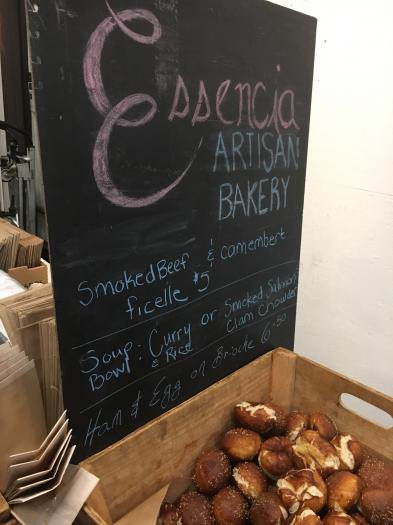 Essencia
ARTISAN
BAKERY
Smoked Beef & Camembert
ficelle $5
Soup: Curry or Smoked Salmon
Bowl & Rice Clam Chowder
Ham & Egg on Brioche 6.50